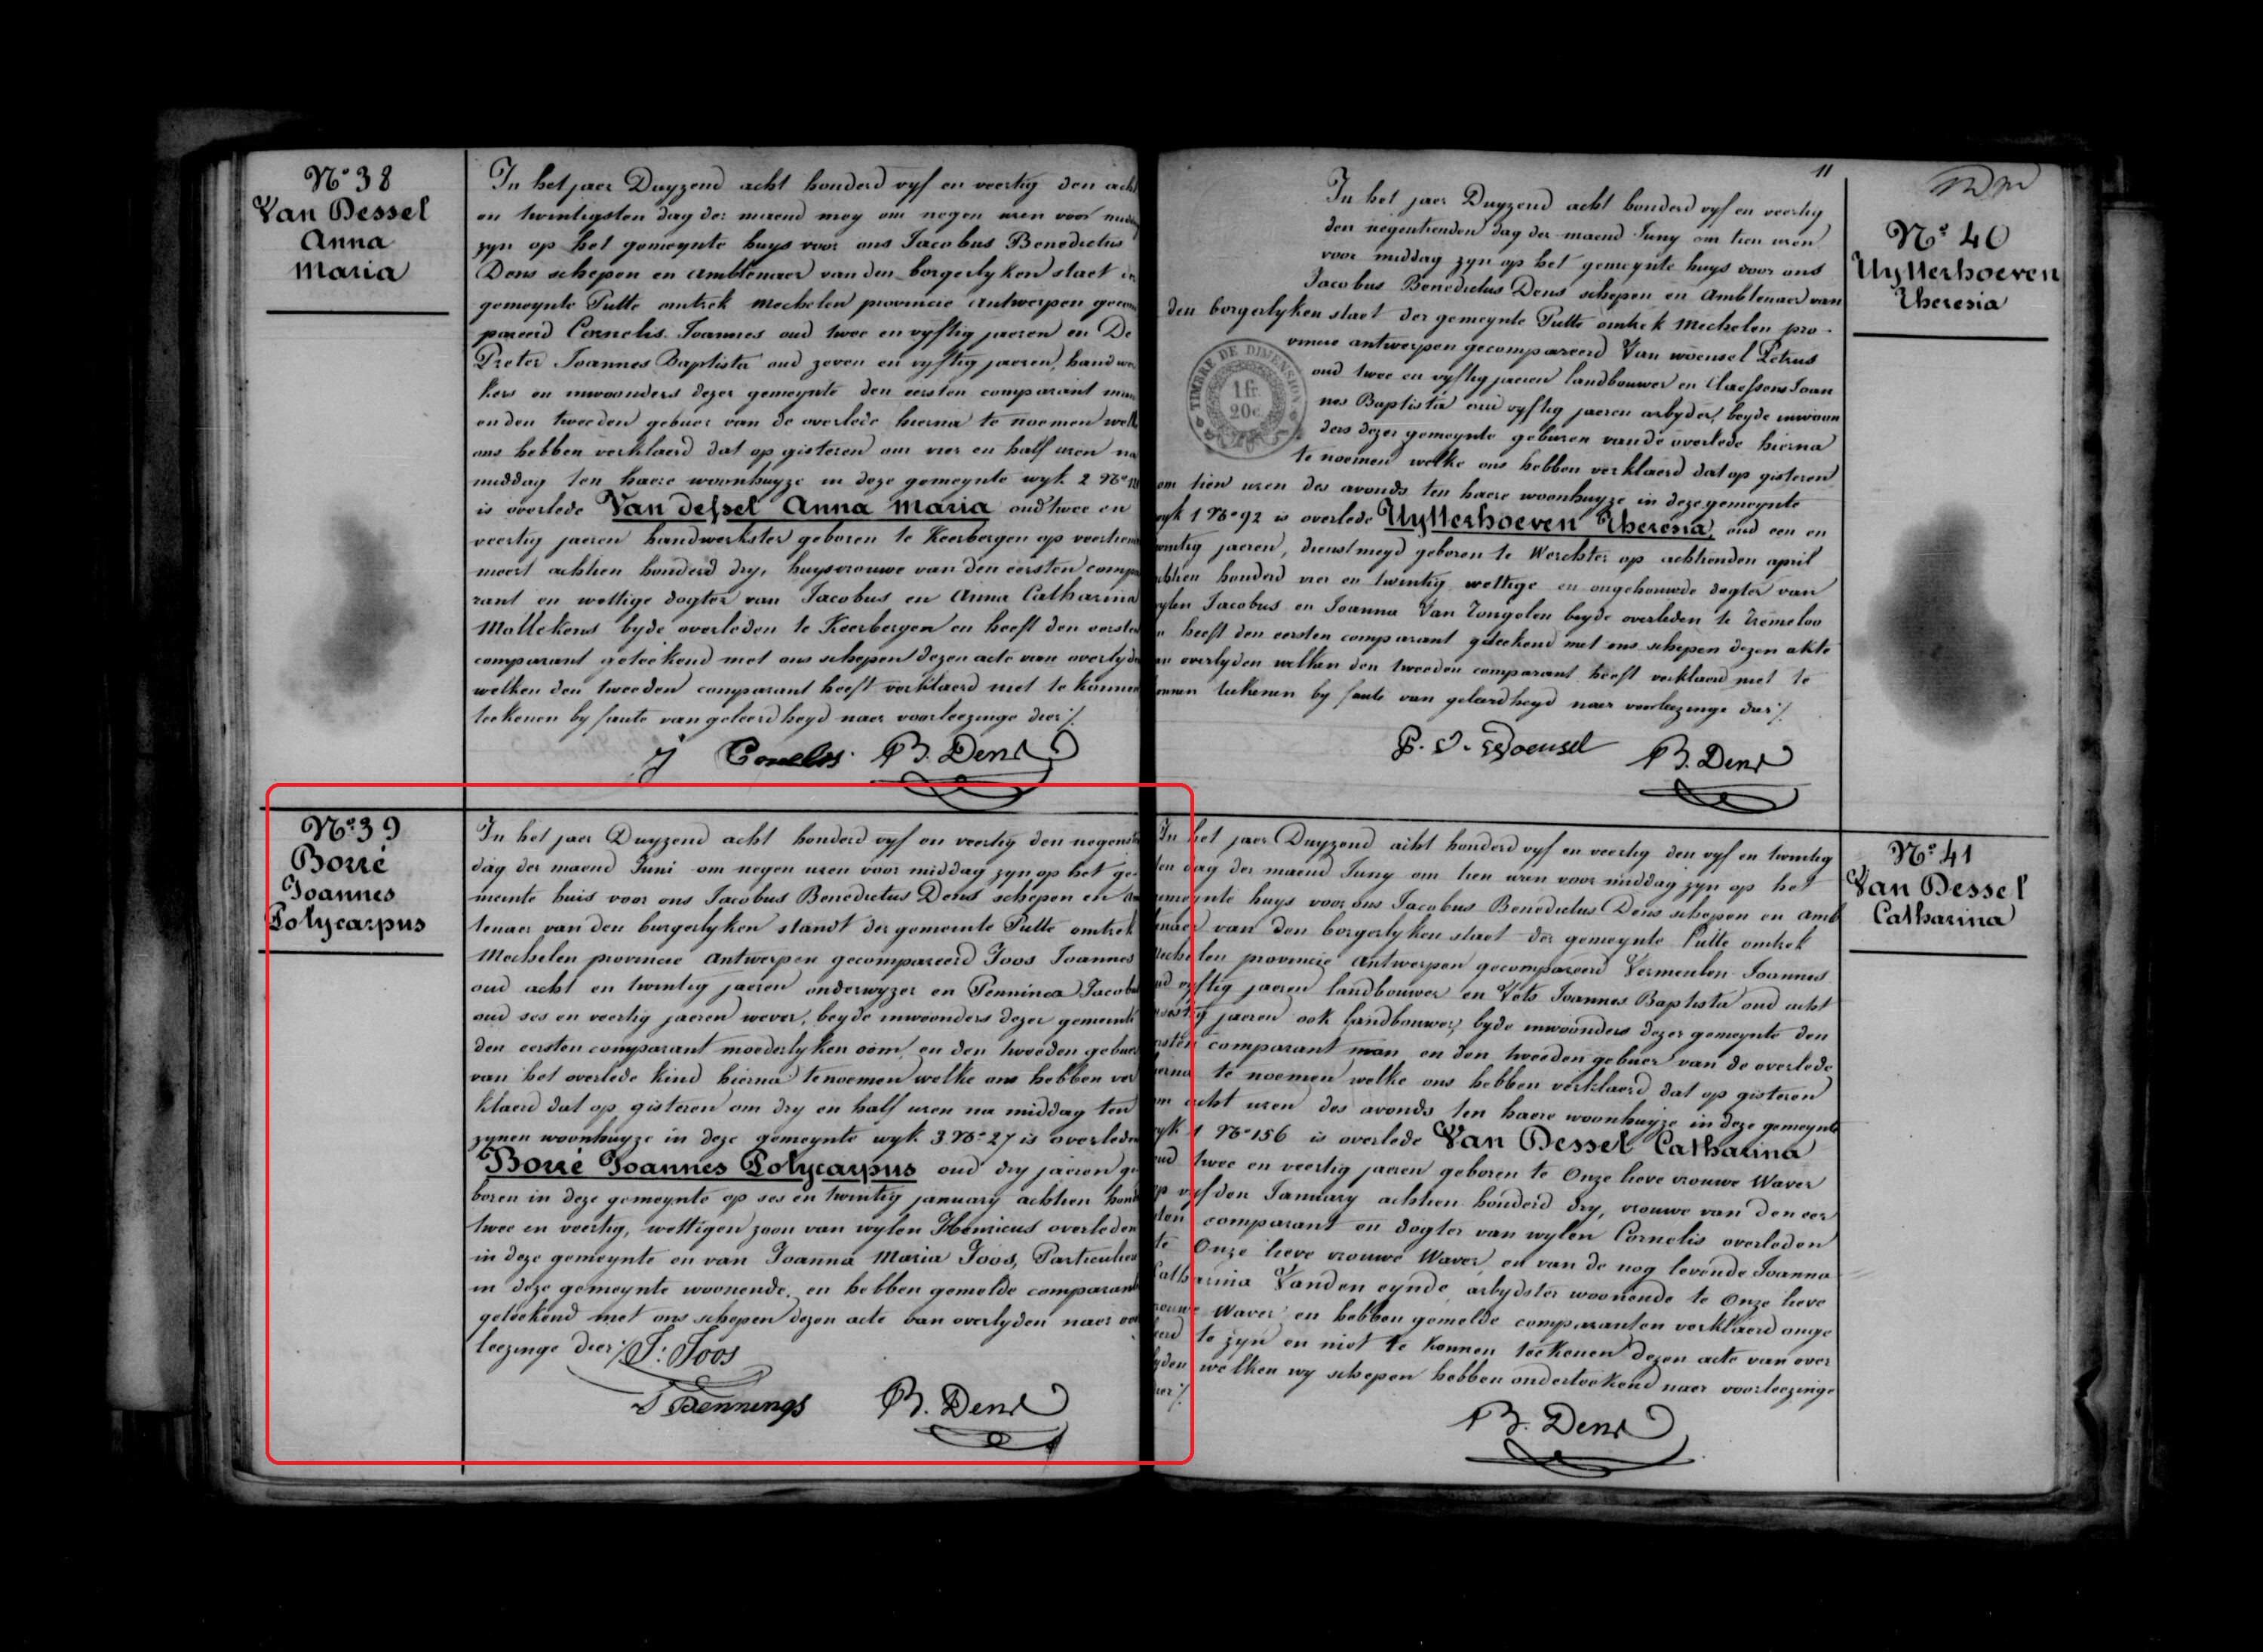 N° 38
Van Dessel
Anna
Maria
In het jaer Duyzend acht honderd vyf en veertig den acht
en twintigsten dag der maend mey om negen uren voor middag
zyn op het gemeynte huys voor ons Jacobus Benedictus
Dens schepen en Amblenaer van den borgerlyken staet der
gemeynte Putte omtrek Mechelen provincie Antwerpen gecom
pareerd Cornelis Joannes oud twee en vyftig jaeren en De
Preter Joannes Baptista oud zeven en vyftig jaeren, handwer
kers en inwoonders dezer gemeynte den eersten comparant man
en den tweeden gebuer van de overlede hierna te noemen welke
ons hebben verklaerd dat op gisteren om vier en half uren na
middag ten haere woonhuyze in deze gemeynte wyk 2 N°
is overlede Van dessel Anna Maria oud twee en
veertig jaeren handwerkster geboren te Keerbergen op veertien
meert achtien honderd dry, huysvrouwe van den eersten compa
rant en wettige dogter van Jacobus en Anna Catharina
Mollekens byde overleden te Keerbergen en heeft den eersten
comparant geteekend met ons schepen dezen acte van overlyden
welken den tweeden comparant heeft verklaerd niet te konnen
teekenen by faute van geleerdheyd naer voorleezinge dier ./.
J Cornelis B. Dens
N° 39
Borré
Joannes
Polycarpus
In het jaer Duyzend acht honderd vyf en veertig den negensten
dag der maend Juni om negen uren voor middag zyn op het ge
meinte huis voor ons Jacobus Benedictus Dens schepen en Am
tenaer van den burgerlyken standt der gemeinte Putte omtrek
Mechelen provincie Antwerpen gecompareerd Joos Joannes
oud acht en twintig jaeren onderwyzer en Penninca Jacobus
oud ses en veertig jaeren wever, beyde inwoonders dezer gemeinte
den eersten comparant moederlyken oom, en den tweeden gebuer
van het overlede kind hierna te noemen welke ons hebben ver
klaerd dat op gisteren om dry en half uren na middag ten
zynen woonhuyze in deze gemeynte wyk 3. N° 27 is overleden
Borré Joannes Polycarpus oud dry jaeren ge
boren in deze gemeynte op ses en twintig january achtien hond
twee en veertig, wettigen zoon van wylen Henricus overleden
in deze gemeynte en van Joanna Maria Joos, Particuliere
in deze gemeynte woonende, en hebben gemelde comparanten
geteekend met ons schepen dezen acte van overlyden naer voor
leezinge dier ./. J. Joos
J Pennings B. Dens
11
N° 40
Uytterhoeven
Theresia
In het jaer Duyzend acht honderd vyf en veertig
den negentienden dag der maend Juny om tien uren
voor middag zyn op het gemeynte huys voor ons
Jacobus Benedictus Dens schepen en Amblenaer van
den borgerlyken staet der gemeynte Putte omtrek Mechelen pro-
vincie antwerpen gecompareerd Van woensel Petrus
oud twee en vyftig jaeren landbouwer en Claessens Joan
nes Baptista oud vyftig jaeren arbyder, beyde inwoon
ders dezer gemeynte geburen van de overlede hierna
te noemen welke ons hebben verklaerd dat op gisteren
TIMBRE DE DIMENSION
1 fr.
20c.
om tien uren des avonds ten haere woonhuyze in deze gemeynte
wyk 1 N° 92 is overlede Uytterhoeven Theresia, oud een en
twintig jaeren, dienstmeyd geboren te Werchter op achtienden april
achtien honderd vier en twintig wettige en ongehouwde dogter van
wylen Jacobus en Joanna Van Tongelen beyde overleden te Tremeloo
en heeft den eersten comparant geteekend met ons schepen dezen akte
van overlyden welken den tweeden comparant heeft verklaerd niet te
konnen teekenen by faute van geleerdheyd naer voorleezinge dier ./.
P. V. Woensel B. Dens
N° 41
Van Dessel
Catharina
In het jaer Duyzend acht honderd vyf en veertig den vyf en twintig
sten dag der maend Juny om tien uren voor middag zyn op het
gemeynte huys voor ons Jacobus Benedictus Dens schepen en Amb
tenaer van den borgerlyken staet der gemeynte Putte omtrek
Mechelen provincie Antwerpen gecompareerd Vermeulen Joannes
oud vyftig jaeren landbouwer en Vets Joannes Baptista oud acht
en veertig jaeren ook landbouwer, byde inwoonders dezer gemeynte den
eersten comparant man en den tweeden gebuer van de overlede
hierna te noemen welke ons hebben verklaerd dat op gisteren
om acht uren des avonds ten haere woonhuyze in deze gemeynte
wyk 1 N° 156 is overlede Van Dessel Catharina
oud twee en veertig jaeren geboren te Onze lieve vrouwe Waver
op vyfden January achtien honderd dry, vrouwe van den eer
sten comparant en dogter van wylen Cornelis overleden
te Onze lieve vrouwe Waver, en van de nog levende Joanna
Catharina Vanden eynde, arbydster woonende te Onze lieve
vrouwe Waver, en hebben gemelde comparanten verklaerd onge
leerd te zyn en niet te konnen teekenen dezen acte van over
lyden welken wy schepen hebben onderteekend naer voorleezinge
dier ./.
B. Dens